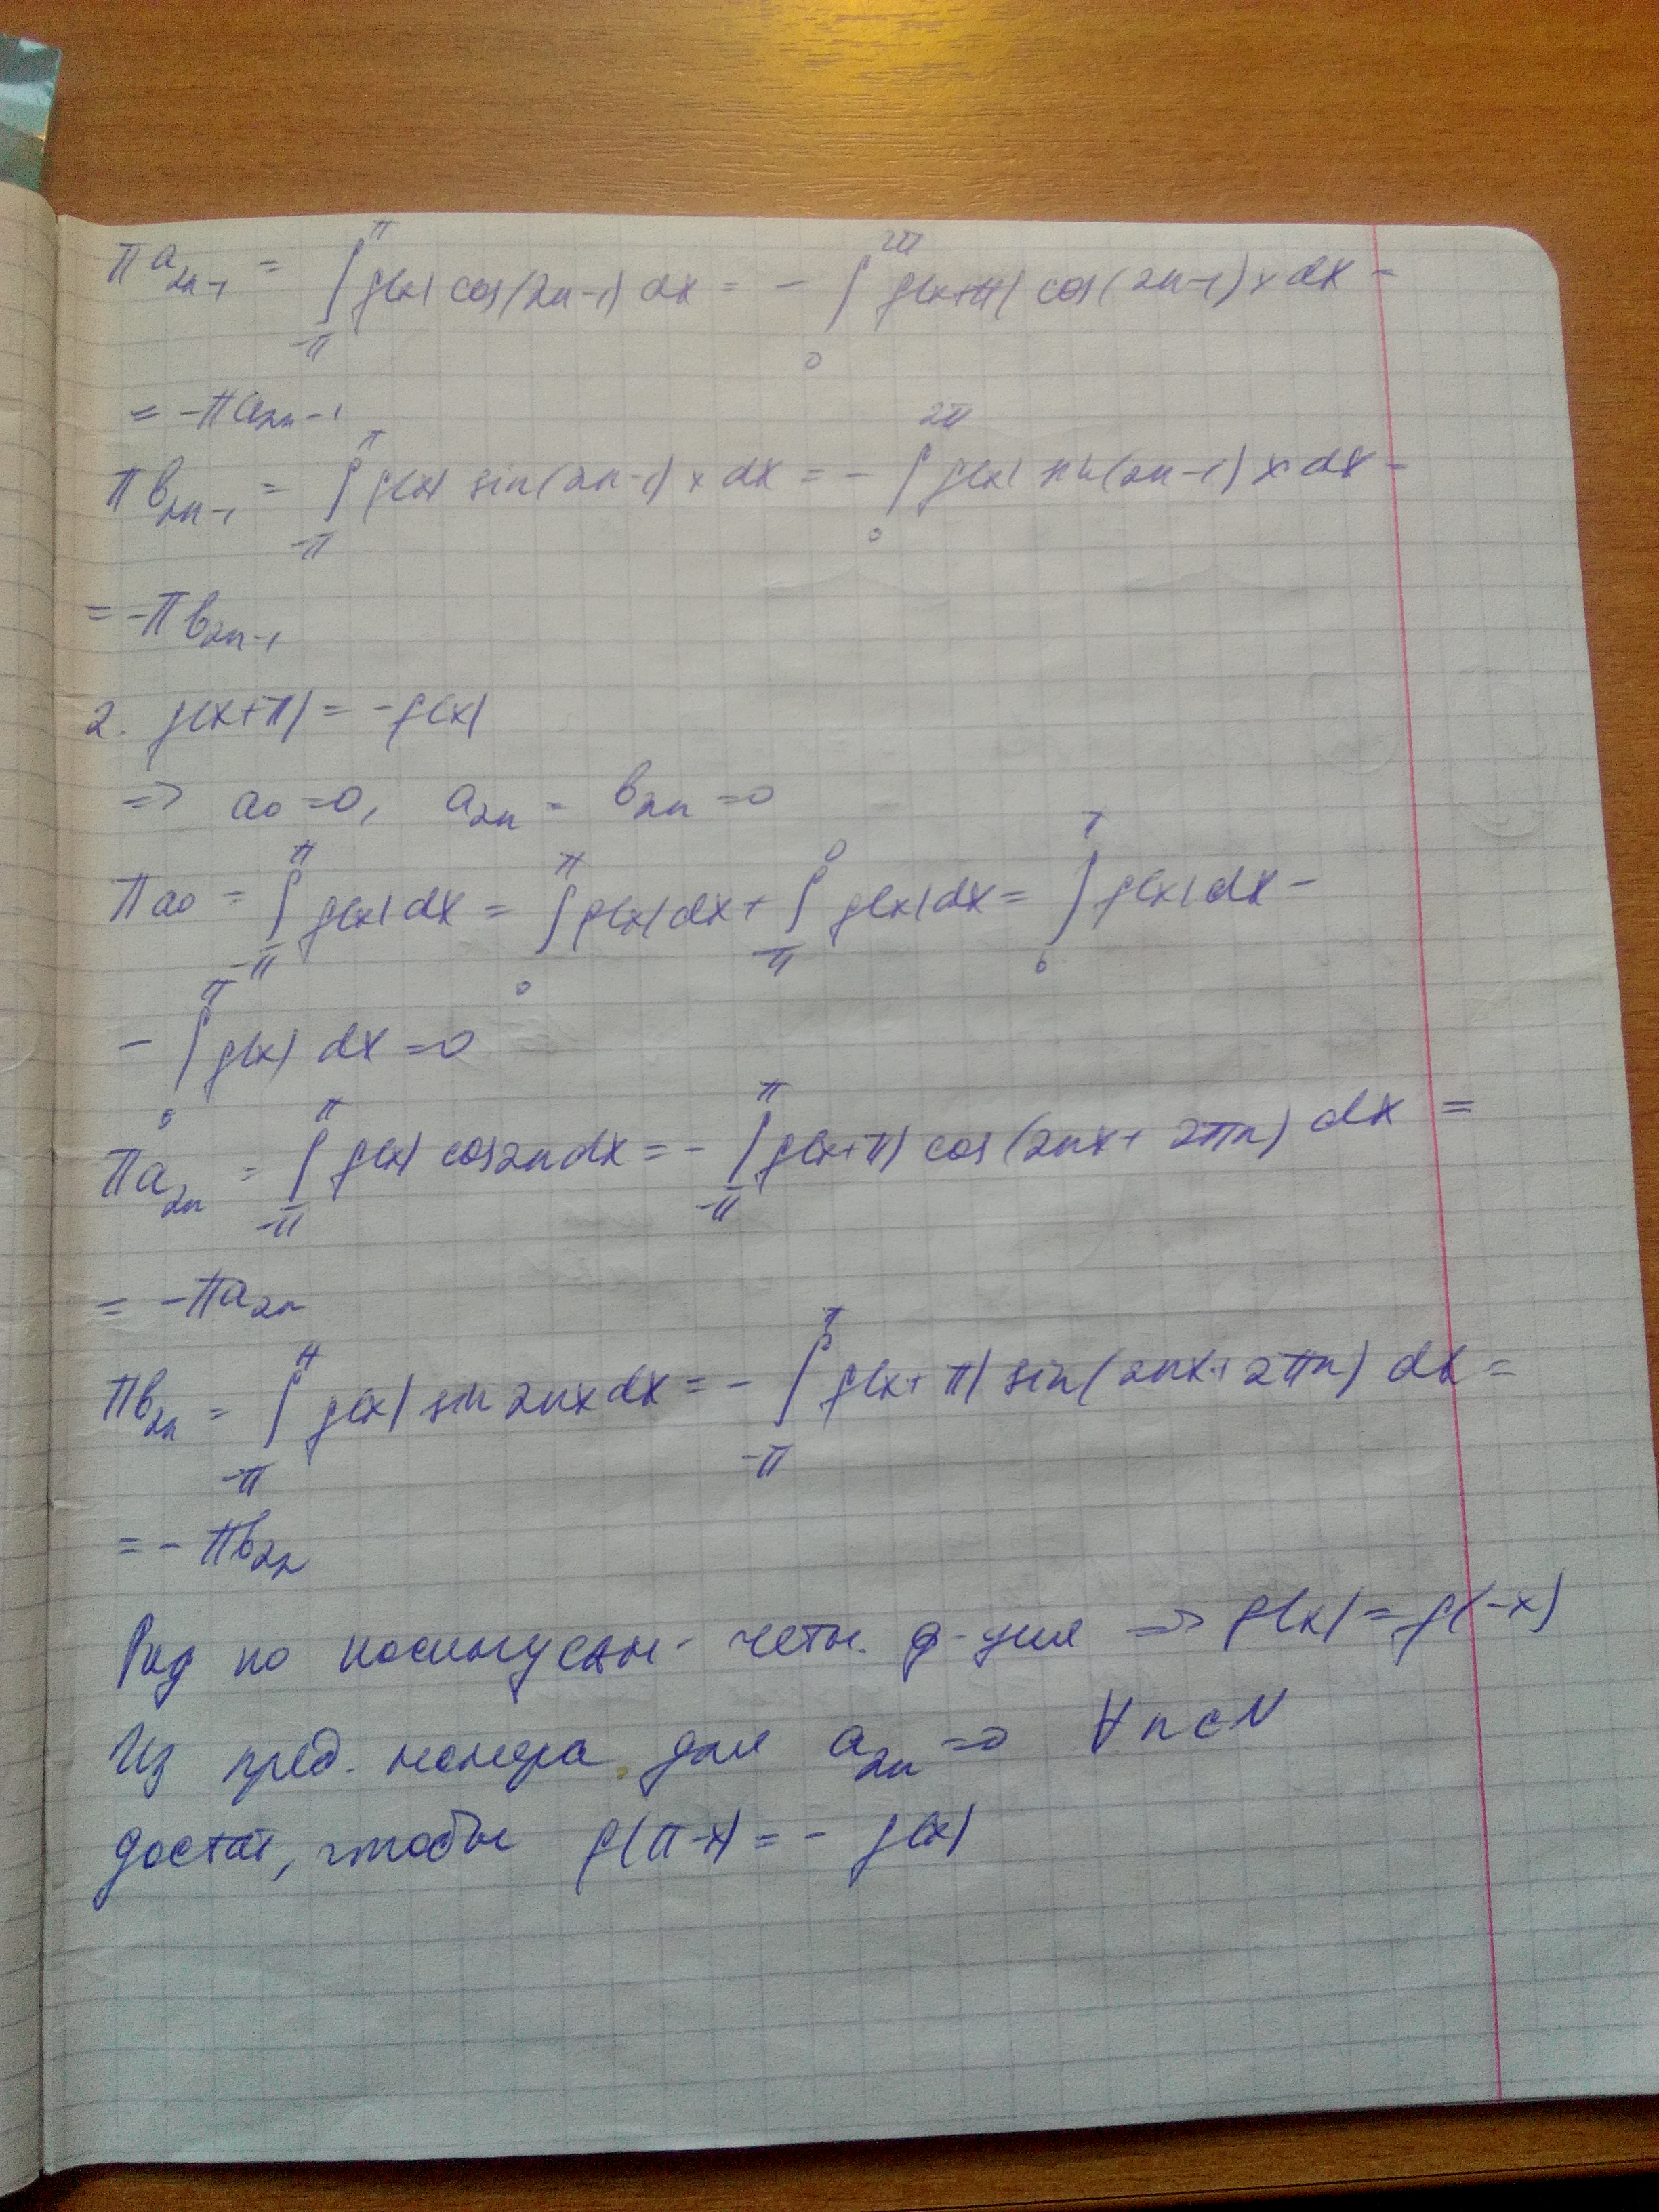 πa₂ₙ₋₁ = ∫_{-π}^{π} f(x) cos(2n-1) dx = - ∫_0^{2π} f(x+π) cos(2n-1)x dx =
= -πa₂ₙ₋₁
πb₂ₙ₋₁ = ∫_{-π}^{π} f(x) sin(2n-1)x dx = - ∫_0^{2π} f(x) sin(2n-1)x dx =
= -πb₂ₙ₋₁
2. f(x+π) = -f(x)
=> a₀ = 0, a₂ₙ = b₂ₙ = 0
πa₀ = ∫_{-π}^{π} f(x)dx = ∫_0^{π} f(x)dx + ∫_{-π}^{0} f(x)dx = ∫_0^{π} f(x)dx -
- ∫_0^{π} f(x) dx = 0
πa₂ₙ = ∫_{-π}^{π} f(x) cos2n dx = - ∫_{-π}^{π} f(x+π) cos(2nx + 2πn) dx =
= -πa₂ₙ
πb₂ₙ = ∫_{-π}^{π} f(x) sin 2nx dx = - ∫_{-π}^{π} f(x+π) sin(2nx+2πn) dx =
= -πb₂ₙ
Ряд по косинусам - четн. ф-ция => f(x) = f(-x)
Из пред. номера для a₂ₙ = 0 ∀n∈N
достат, чтобы f(π-x) = - f(x)